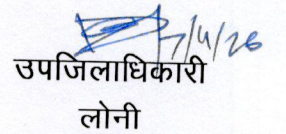 7/4/26
उपजिलाधिकारी
लोनी